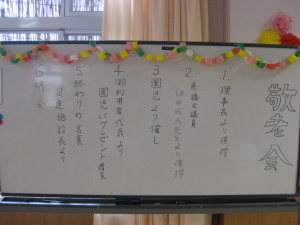 敬老会
1. 理事長より挨拶
2. 県議会議員
より挨拶
3 園児より催し
4 御利用者代表より
園児にプレゼント贈呈
5 終わりの言葉
施設長より
6 閉会